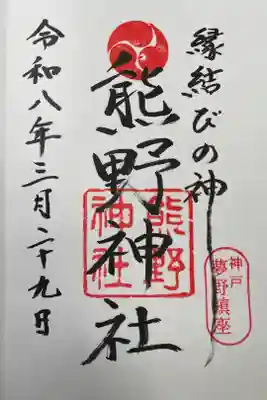 縁結びの神
熊野神社
熊野
神社
神戸
夢野鎮座
令和八年三月二十九日